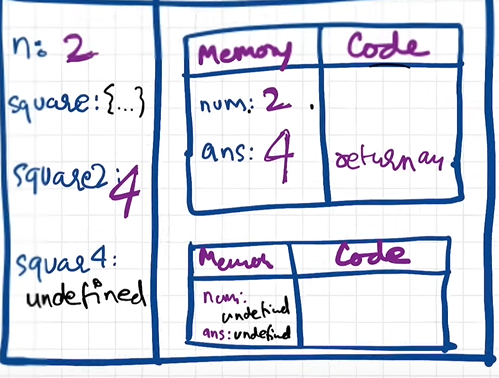 n: 2
square: {...}
square2: 4
squar4:
undefined
Memory Code
num: 2
ans: 4
return an
Memor Code
num:
undefind
ans: undefind